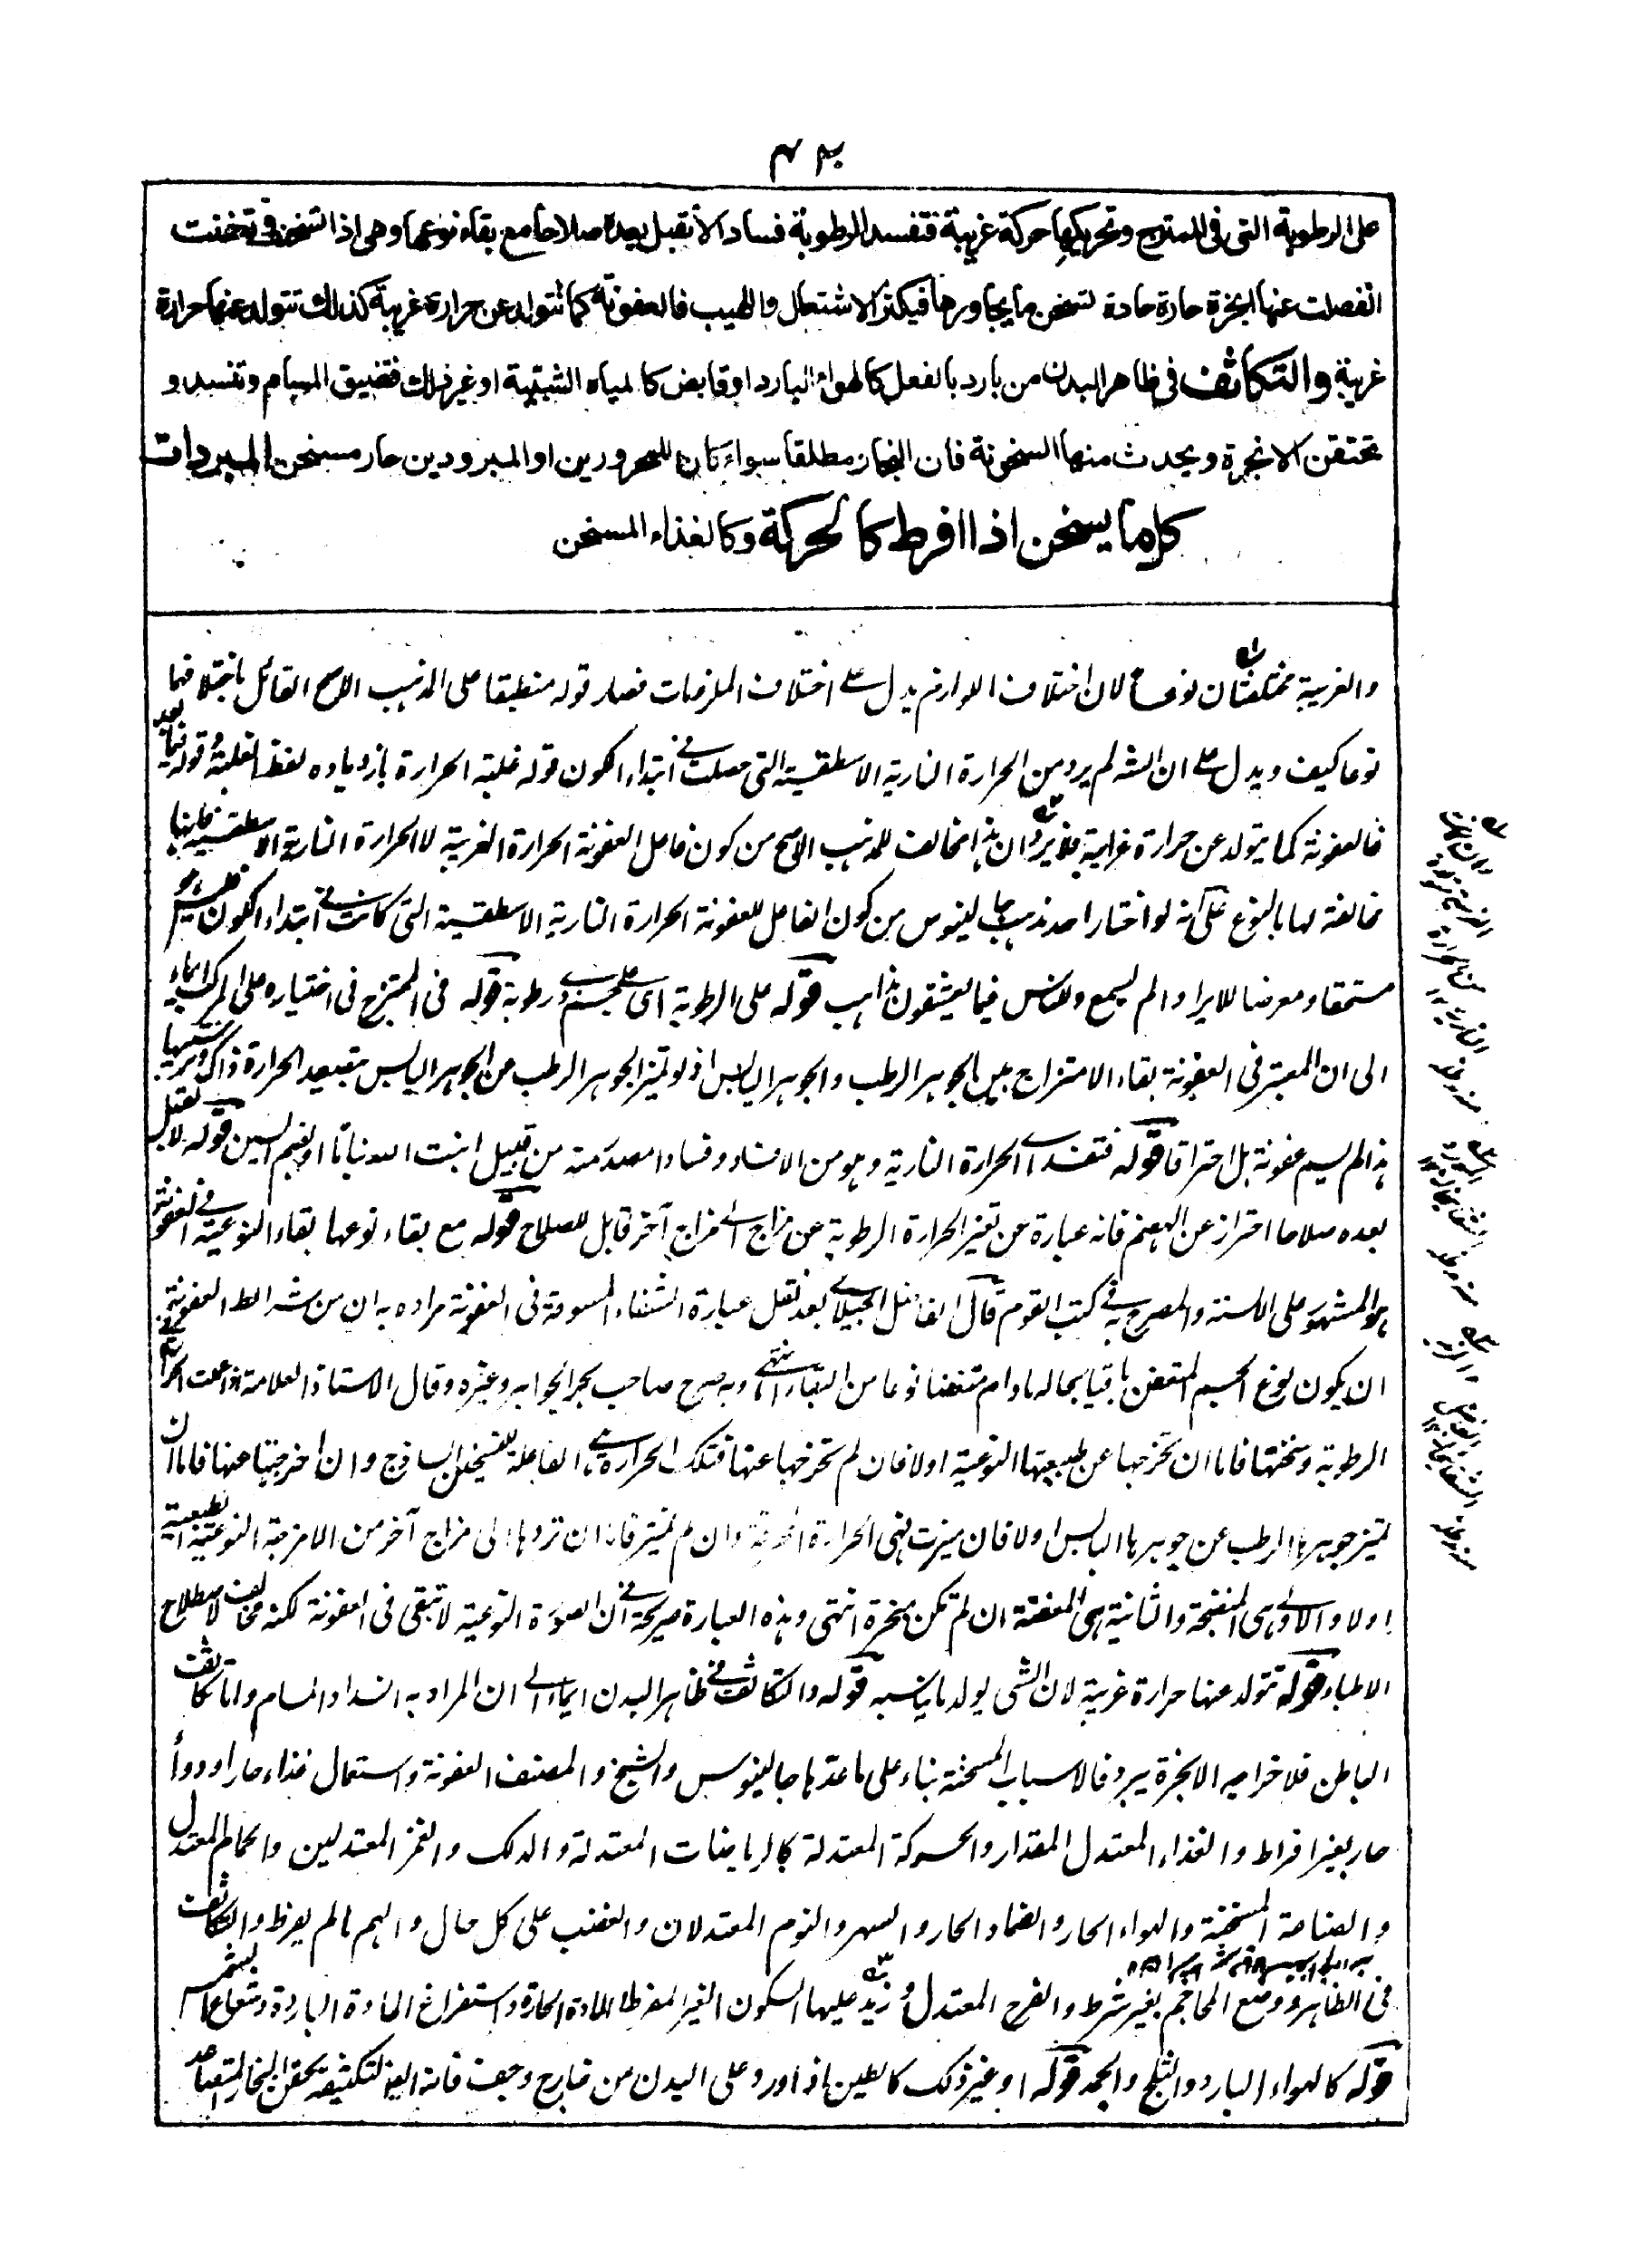 على الرطوبة التى فى الممتزج وتحريكها حركة غريبة فتفسد الرطوبة فسادا لا تقبل بعده صلاحا مع بقاء نوعها وهى اذا تسخنت
انفصلت عنها ابخرة حارة حادة تسخن ما يجاورها فيكثر الاشتعال واللهيب فالعفونة كما تتولد عن حرارة غريبة كذلك تتولد عنها حرارة
غريبة والتكاثف فى ظاهر البدن من بارد بالفعل كالهواء البارد او قابض كالمياه الشبية او غير ذلك فتضيق المسام وتنسد و
تحتقن الابخرة ويحدث منها السخونة فان البخار مطلقا سواء كان للمحرورين او المبرودين حار مسخن المبردات
كل ما يسخن اذا افرط كالحركة وكالغذاء المسخن
والغريبة مختلفتان نوعا لان اختلاف اللوازم يدل على اختلاف الملزومات فصار قوله منطبقا على المذهب الاصح القائل باختلافهما
نوعا كيف ويدل على ان الش لم يرد من الحرارة النارية الاسطقسية التى حصلت فى ابتداء الكون قوله غلبة الحرارة بازدياده لفظ الغلبة وقوله فيما بعد
فالعفونة كما يتولد عن حرارة غريبة فلا يرد ان هذا مخالف للمذهب الاصح من كون فاعل العفونة الحرارة الغريبة لا الحرارة النارية الاسطقسية فانها
مخالفة لها بالنوع على انه لو اختار احد مذهب جالينوس من كون الفاعل للعفونة الحرارة النارية الاسطقسية التى كانت فى ابتداء الكون فليس هو
مستحقا ومعرضا للايراد الم يسمع وللناس فيما يعشقون مذاهب قوله على الرطوبة اى على جسم ذى رطوبة قوله فى الممتزج فى اختياره على المركب ايماء
الى ان المعتبر فى العفونة بقاء الامتزاج بين الجوهر الرطب والجوهر اليابس اذ لو تميز الجوهر الرطب من الجوهر اليابس بتصعيد الحرارة ذاك وترسيبها
هذا لم يسم عفونة بل احتراقا قوله فتفسد اى الحرارة النارية وهو من الافساد وفسادا مصدر منه من قبيل انبت الله نباتا او بضم السين قوله لا تقبل
بعده صلاحا احتراز عن الهضم فانه عبارة عن تغير الحرارة الرطوبة عن مزاج الى مزاج آخر قابل للصلاح قوله مع بقاء نوعها بقاء النوعية فى العفونة
هو المشهور على السنة والمصرح به فى كتب القوم قال الفاضل الجيلانى بعد نقل عبارة الشفاء المسوقة فى العفونة مراده به ان من شرائط العفونة
ان يكون نوع الجسم المتعفن باقيا بحاله مادام متعفنا نوعا من البقاء انتهى وبه صرح صاحب بحر الجواهر وغيره وقال الاستاذ العلامة اذا عملت الحرارة فى
الرطوبة وسخنتها فاما ان تخرجها عن طبيعتها النوعية اولا فان لم تخرجها عنها فتلك الحرارة هى الفاعلة للتسخين الساذج وان اخرجتها عنها فاما ان
تميز جوهرها الرطب عن جوهرها اليابس اولا فان ميزت فهى الحرارة المحرقة وان لم تميز فاما ان تردها الى مزاج آخر من الامزجة النوعية الطبيعية
اولا والاولى هى المنضجة والثانية هى المعفنة ان لم تكن مبخرة انتهى وهذه العبارة صريحة فى ان الصورة النوعية لا تبقى فى العفونة لكنه مخالف لاصطلاح
الاطباء قوله تتولد عنها حرارة غريبة لان الشئ يولد ما يناسبه قوله والتكاثف فى ظاهر البدن ايماء الى ان المراد به انسداد المسام واما تكاثف
الباطن فلاخراجه الابخرة يبرد فالاسباب المسخنة بناء على ما عدها جالينوس والشيخ والمصنف العفونة واستعمال غذاء حار او دواء
حار بغير افراط والغذاء المعتدل المقدار والحركة المعتدلة كالرياضات المعتدلة والدلك والغمز المعتدلين والحمام المعتدل
والصناعة المسخنة والهواء الحار والضماد الحار والسهر والنوم المعتدلان والغضب على كل حال والهم مالم يفرط والتكاثف
فى الظاهر ووضع المحاجم بغير شرط والفرح المعتدل وزيد عليها السكون الغير المفرط المادة الحارة واستفراغ المادة الباردة وشعاع الشمس
قوله كالهواء البارد والثلج والجمد قوله او غير ذلك كالطين اذا ورد على البدن من خارج وجف فانه ايضا لتكثيفه يحقن البخار المتصاعد